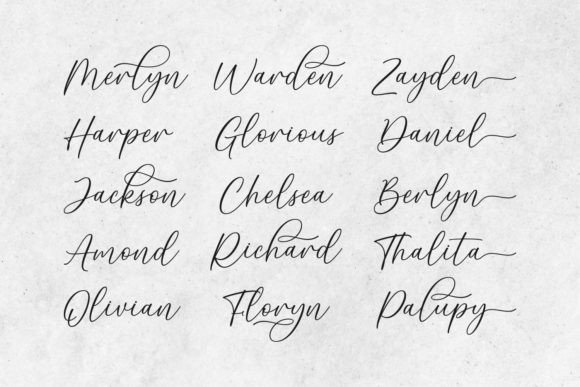 Merlyn Warden Zayden
Harper Glorious Daniel
Jackson Chelsea Berlyn
Amond Richard Thalita
Olivian Floryn Palupy